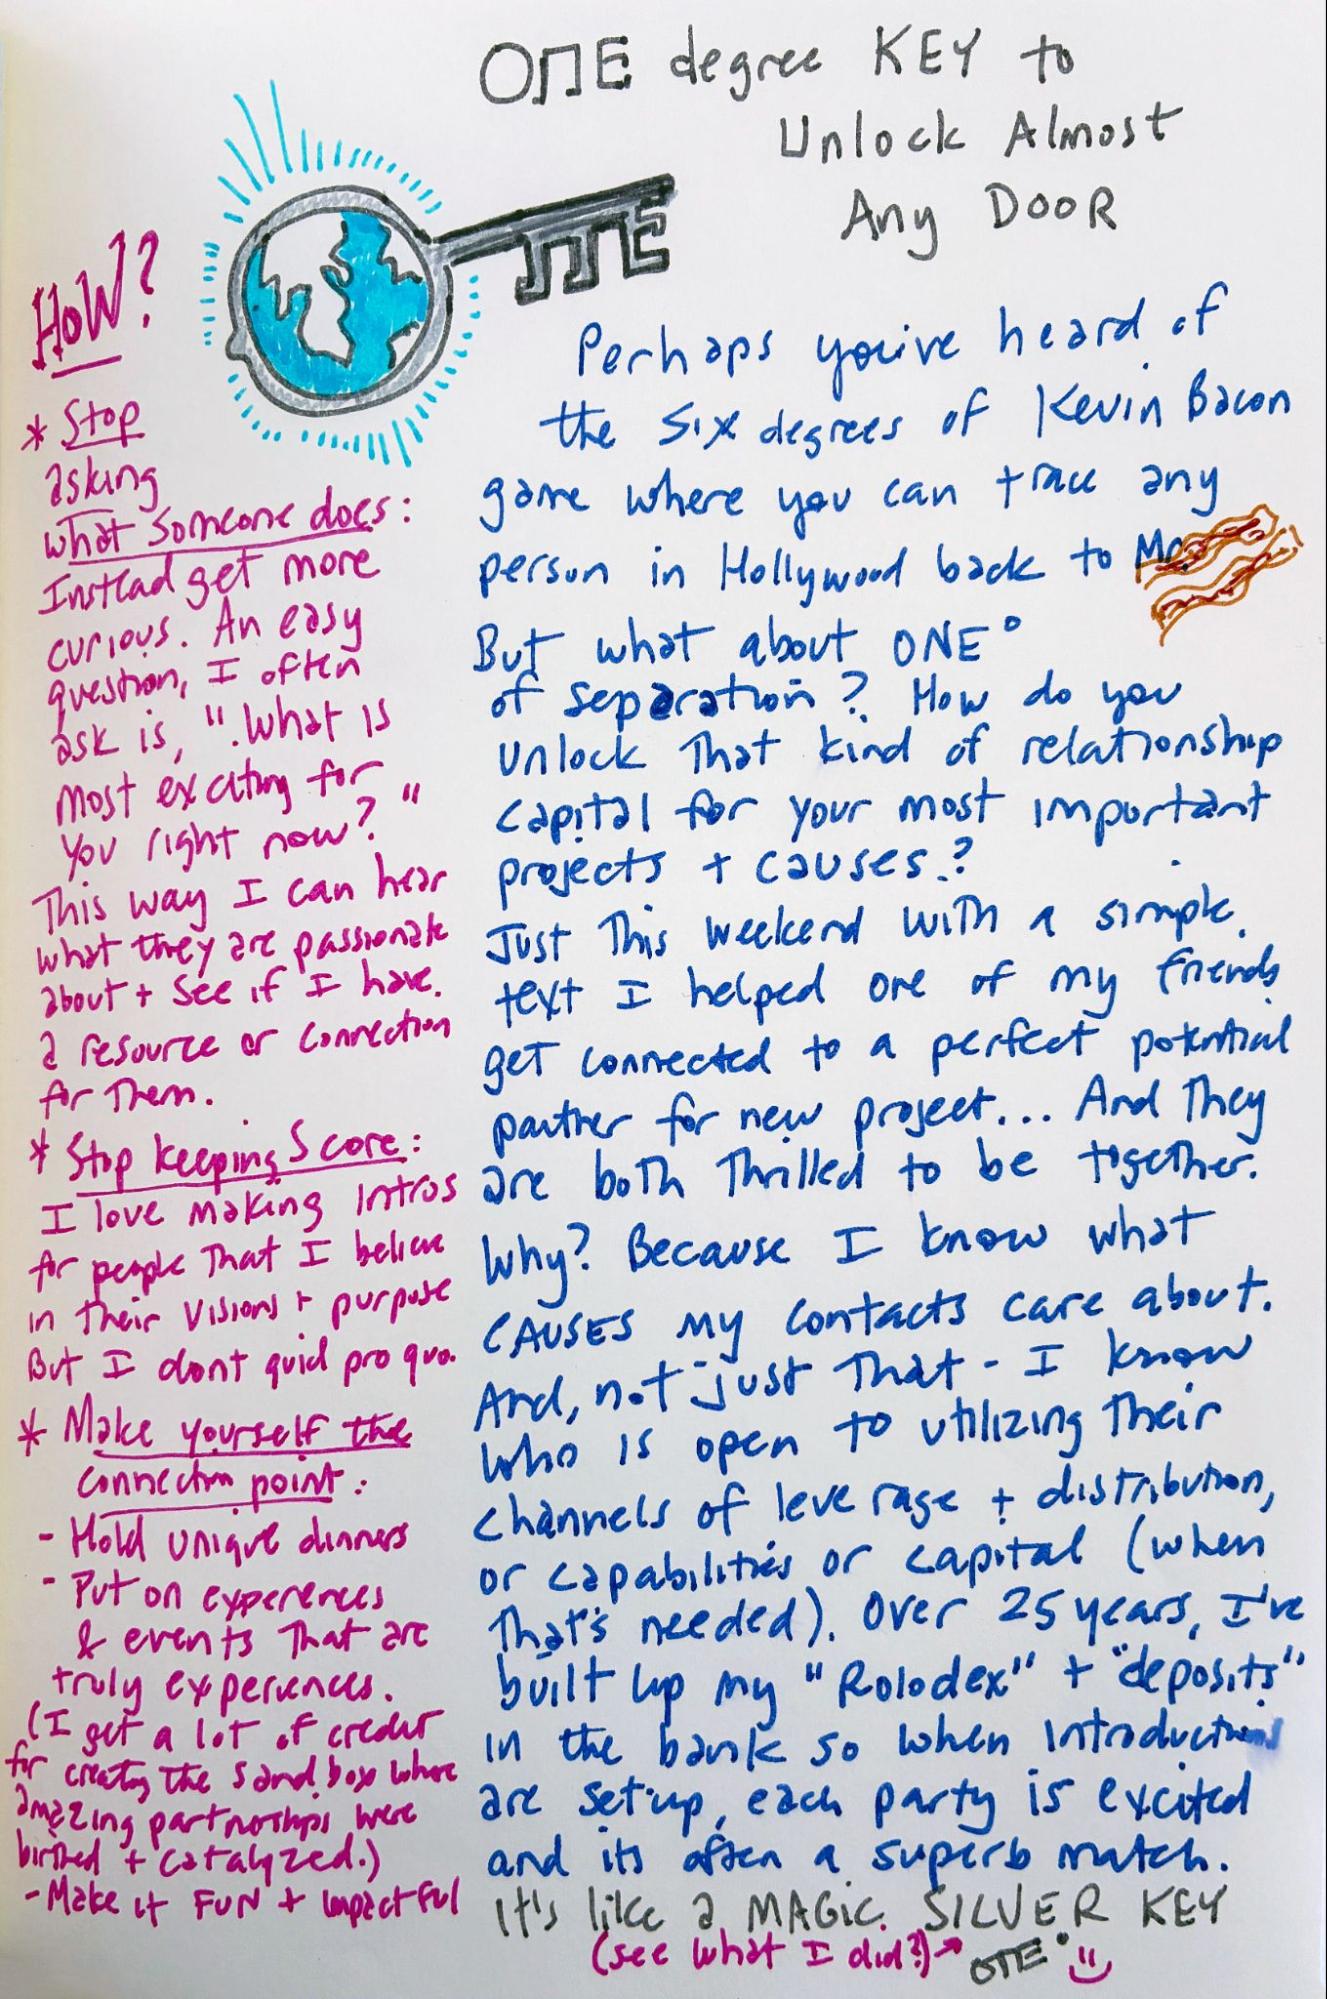 ONE degree KEY to
Unlock Almost
Any DOOR
Perhaps you've heard of
the Six degrees of Kevin Bacon
game where you can trace any
person in Hollywood back to Mr.
But what about ONE°
of separation? How do you
unlock that kind of relationship
capital for your most important
projects + causes?
Just this weekend with a simple
text I helped one of my friends
get connected to a perfect potential
partner for new project... And they
are both thrilled to be together.
Why? Because I know what
CAUSES my contacts care about.
And, not just that - I know
who is open to utilizing their
channels of leverage + distribution,
or capabilities or capital (when
that's needed). Over 25 years, I've
built up my "Rolodex" + "deposits"
in the bank so when introductions
are set-up, each party is excited
and its often a superb match.
It's like a MAGIC SILVER KEY
(see what I did?)→ ONE° :)
HOW?
* Stop
asking
what someone does:
Instead get more
curious. An easy
question, I often
ask is, "What is
most exciting for
you right now?"
This way I can hear
what they are passionate
about + see if I have
a resource or connection
for them.
* Stop keeping Score:
I love making intros
for people that I believe
in their visions + purpose
But I dont quid pro quo.
* Make yourself the
connection point:
- Hold unique dinners
- Put on experences
& events that are
truly experiences.
(I get a lot of credit
for creating the sandbox where
amazing partnerships were
birthed + catalyzed.)
- Make it FUN + impactful